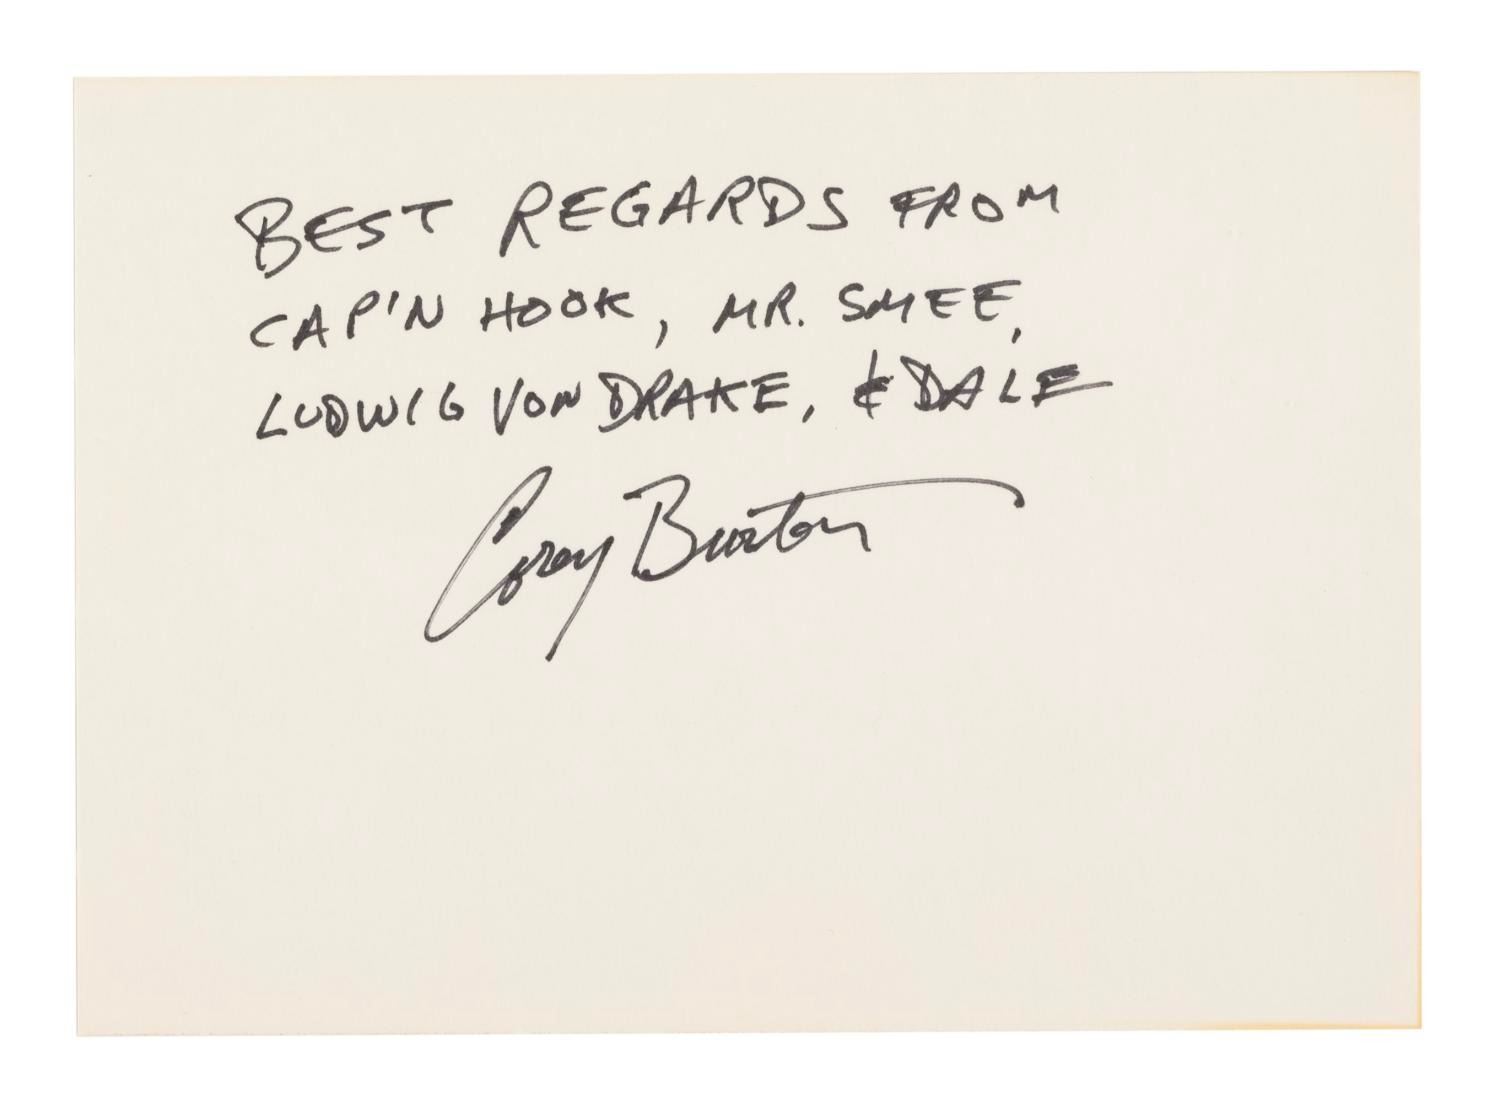 BEST REGARDS FROM
CAP'N HOOK, MR. SMEE,
LUDWIG VON DRAKE, & DALE
Corey Burton